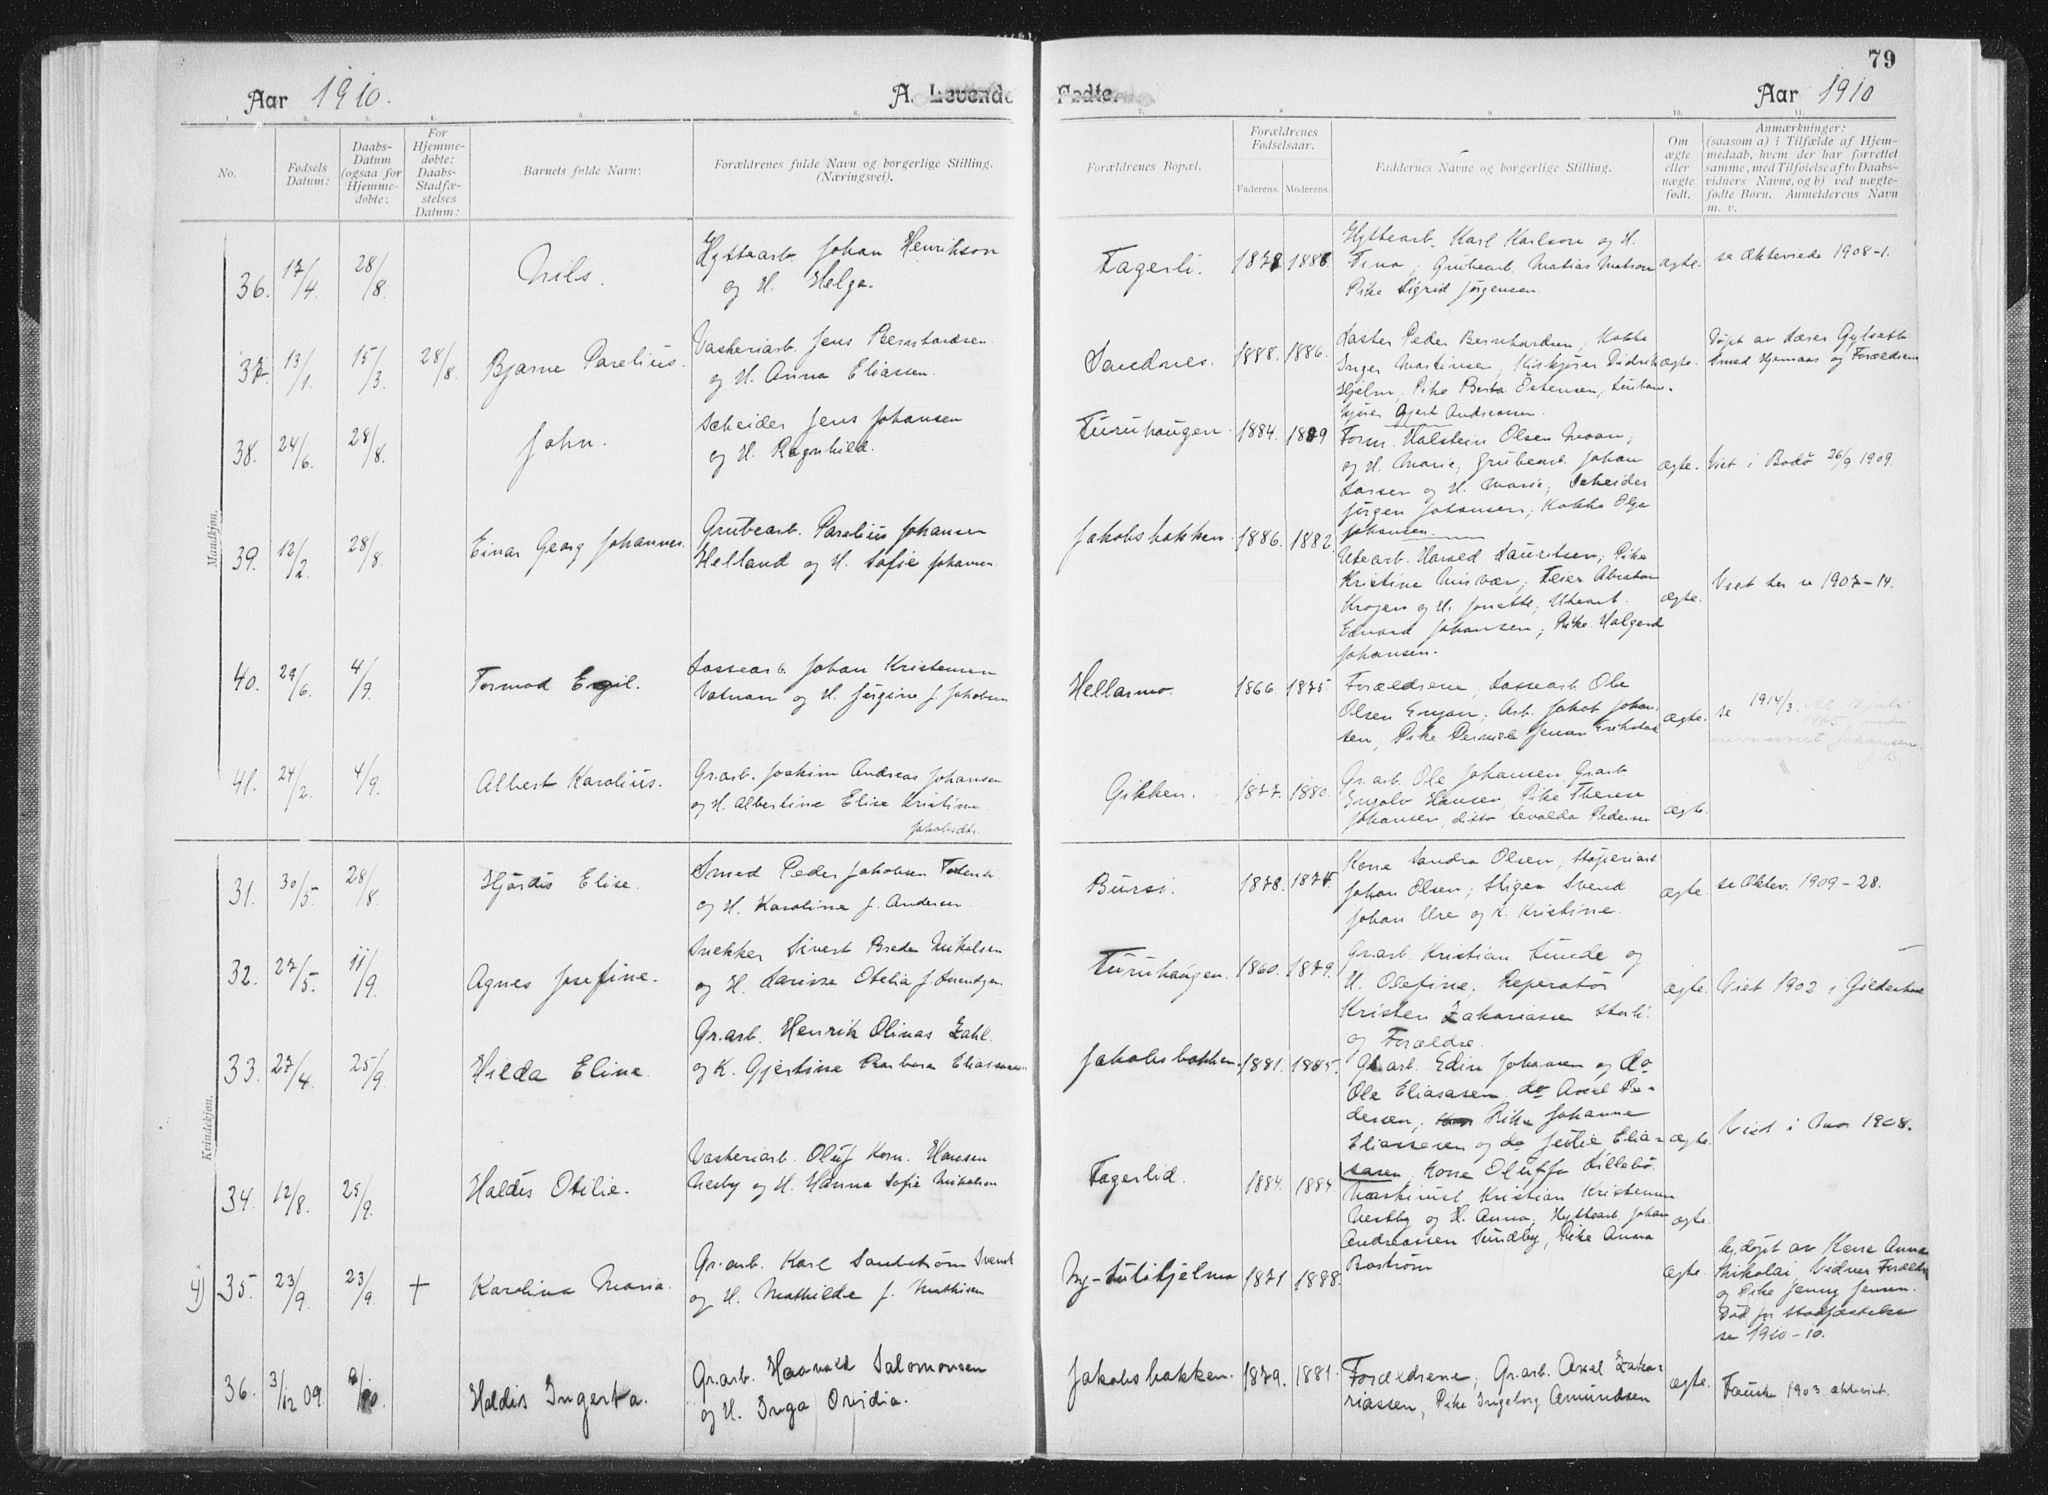 79
Aar 1910. A. Levende Fødte. Aar 1910
1. 2. 3. 4. 5. 6. 7. 8. 9. 10. 11.
No.
Fødsels Datum:
Daabs-Datum (ogsaa for Hjemme-døbte:
For Hjemme-døbte: Daabs-Stadfæ-stelses Datum:
Barnets fulde Navn:
Forældrenes fulde Navn og borgerlige Stilling. (Næringsvei).
Forældrenes Bopæl.
Forældrenes Fødselsaar.
Faderens. Moderens.
Faddernes Navne og borgerlige Stilling.
Om ægte eller uægte født.
Anmærkninger: (saasom a) i Tilfælde af Hjem-medaab, hvem der har forrettet samme, med Tilføielse af to Daabs-vidners Navne, og b) ved uægte-fødte Børn. Anmelderens Navn m. v.
Mandkjøn.
36. 17/4. 28/8. Nils.
Hyttearb. Johan Henrikson
og H. Helga.
Fagerli. 1878. 1888.
Hyttearb. Karl Karlson og H.
Tina; Grubearb. Matias Matson
Pike Sigrid Jørgensen.
ægte. se Ekteviede 1908-1.
37. 13/1. 15/3. 28/8. Bjarne Parelius.
Vaskeriarb. Jens Bernhardsen
og H. Anna Eliassen.
Sandnes. 1888. 1886.
Laster Peder Bernhardsen, Kokke
Inger Martinsen, Kiskjører Didrik
Hjelm, Pike Berta Østensen,
kjører Gjert Andreassen.
ægte. Døpt av Lærer Gylseth
Smed Hjemaas og Forældrene
38. 24/6. 28/8. John.
Scheider Jens Johansen
og H. Ragnhild.
Furuhaugen. 1884. 1889
Form. Halstein Olsen Moan;
og H. Marie; Grubearb. Johan
Larsen og H. Marie; Scheider
Jørgen Johansen; Kokke Olga
Johansen.
ægte. Viet i Bodø 26/9 1909.
39. 12/2. 28/8. Einar Georg Johannes.
Grubearb. Parelius Johansen
Helland og H. Sofie Johansen
Jakobsbakken. 1886. 1882.
Utearb. Harald Lauritsen; Pike
Kristine Misvær; Feier Abraham
Krogen og H. Jonette; Utearb.
Edvard Johansen; Pike Valgerd
Johansen.
ægte. Viet her se 1907-14.
40. 29/6. 4/9. Tormod Egil.
Lossearb. Johan Kristensen
Vatnan og H. Jørgine f. Jakobsen
Hellarmo. 1866. 1875.
Forældrene, Lossearb. Ole
Olsen Engan; Arb. Jakob Johan-
sen, Pike Pernille Jensen Erikstad
ægte. se 1914/3.
41. 24/2. 4/9. Albert Karolius.
Gr.arb. Joakim Andreas Johansen
og H. Albertine Elise Kristine
Jakobsdtr.
Gikken. 1877. 1880.
Gr.arb. Ole Johansen, Gr.arb
Ingolv Hansen, Pike Therese
Johansen, ditto Sevalda Pedersen
ægte.
Kvindekjøn.
31. 30/5. 28/8. Hjørdis Elise.
Smed Peder Jakobsen
og H. Karoline f. Andersen.
Bursi. 1878. 1874.
Kone Sandra Olsen, Støperiarb.
Johan Olsen; Stiger Svend
Johan Ure og K. Kristine.
ægte. se Ektev. 1909-28.
32. 27/5. 11/9. Agnes Josefine.
Snekker Sivert Breda Nikolsen
og H. Larisse Otelia f. Lorentzen.
Furuhaugen. 1860. 1879.
Gr.arb. Kristian Lunde og
H. Olefine. Reperatør
Kristen Zakariassen Storli.
og Forældre.
ægte. Viet 1902 i Gildeskaal
33. 27/4. 25/9. Hilda Eline
Gr.arb. Henrik Olinas Zahl
og K. Gjertine Barbara Eliassen
Jakobsbakken. 1881. 1885.
Gr.arb. Edin Johansen og do
Ole Eliasasen do Axel Pe-
dersen, Pike Johanne
Eliassesen og do Jentie Elia-
sasen, Kone Oluffa Lillebø.
ægte. Viet i Mars 1908.
34. 12/8. 25/9. Haldis Otilie.
Vaskeriarb. Oluf Korn. Hansen
Nesby og H. Hanna Sofie Mikalsen
Fagerlid. 1884. 1884
Maskinist Kristian Kristensen
Nestby og H. Anna, Hyttearb. Johan
Andreassen Sundby, Pike Anna
Bostrøm
ægte.
4) 35. 23/9. 23/9. + Karolina Maria.
Gr.arb. Karl Sandstrøm Svensk
og H. Mathilde f. Mathisen
Ny-Sulitjelma 1871 1888.
ægte. hj.døpt av Kone Anna
Nikolai, Vidner Forældre
og Pike Jenny Jensen.
Død før stadfæstelse
se 1910-10.
36. 3/12 09. Haldis Ingerta.
Gr.arb. Haavald Salomonsen
og H. Inga Ovidia.
Jakobsbakken. 1879. 1881.
Forældrene; Gr.arb. Axel Zaka-
riassen, Pike Ingeborg Amundsen
ægte. Fauske 1903 ekteviet.